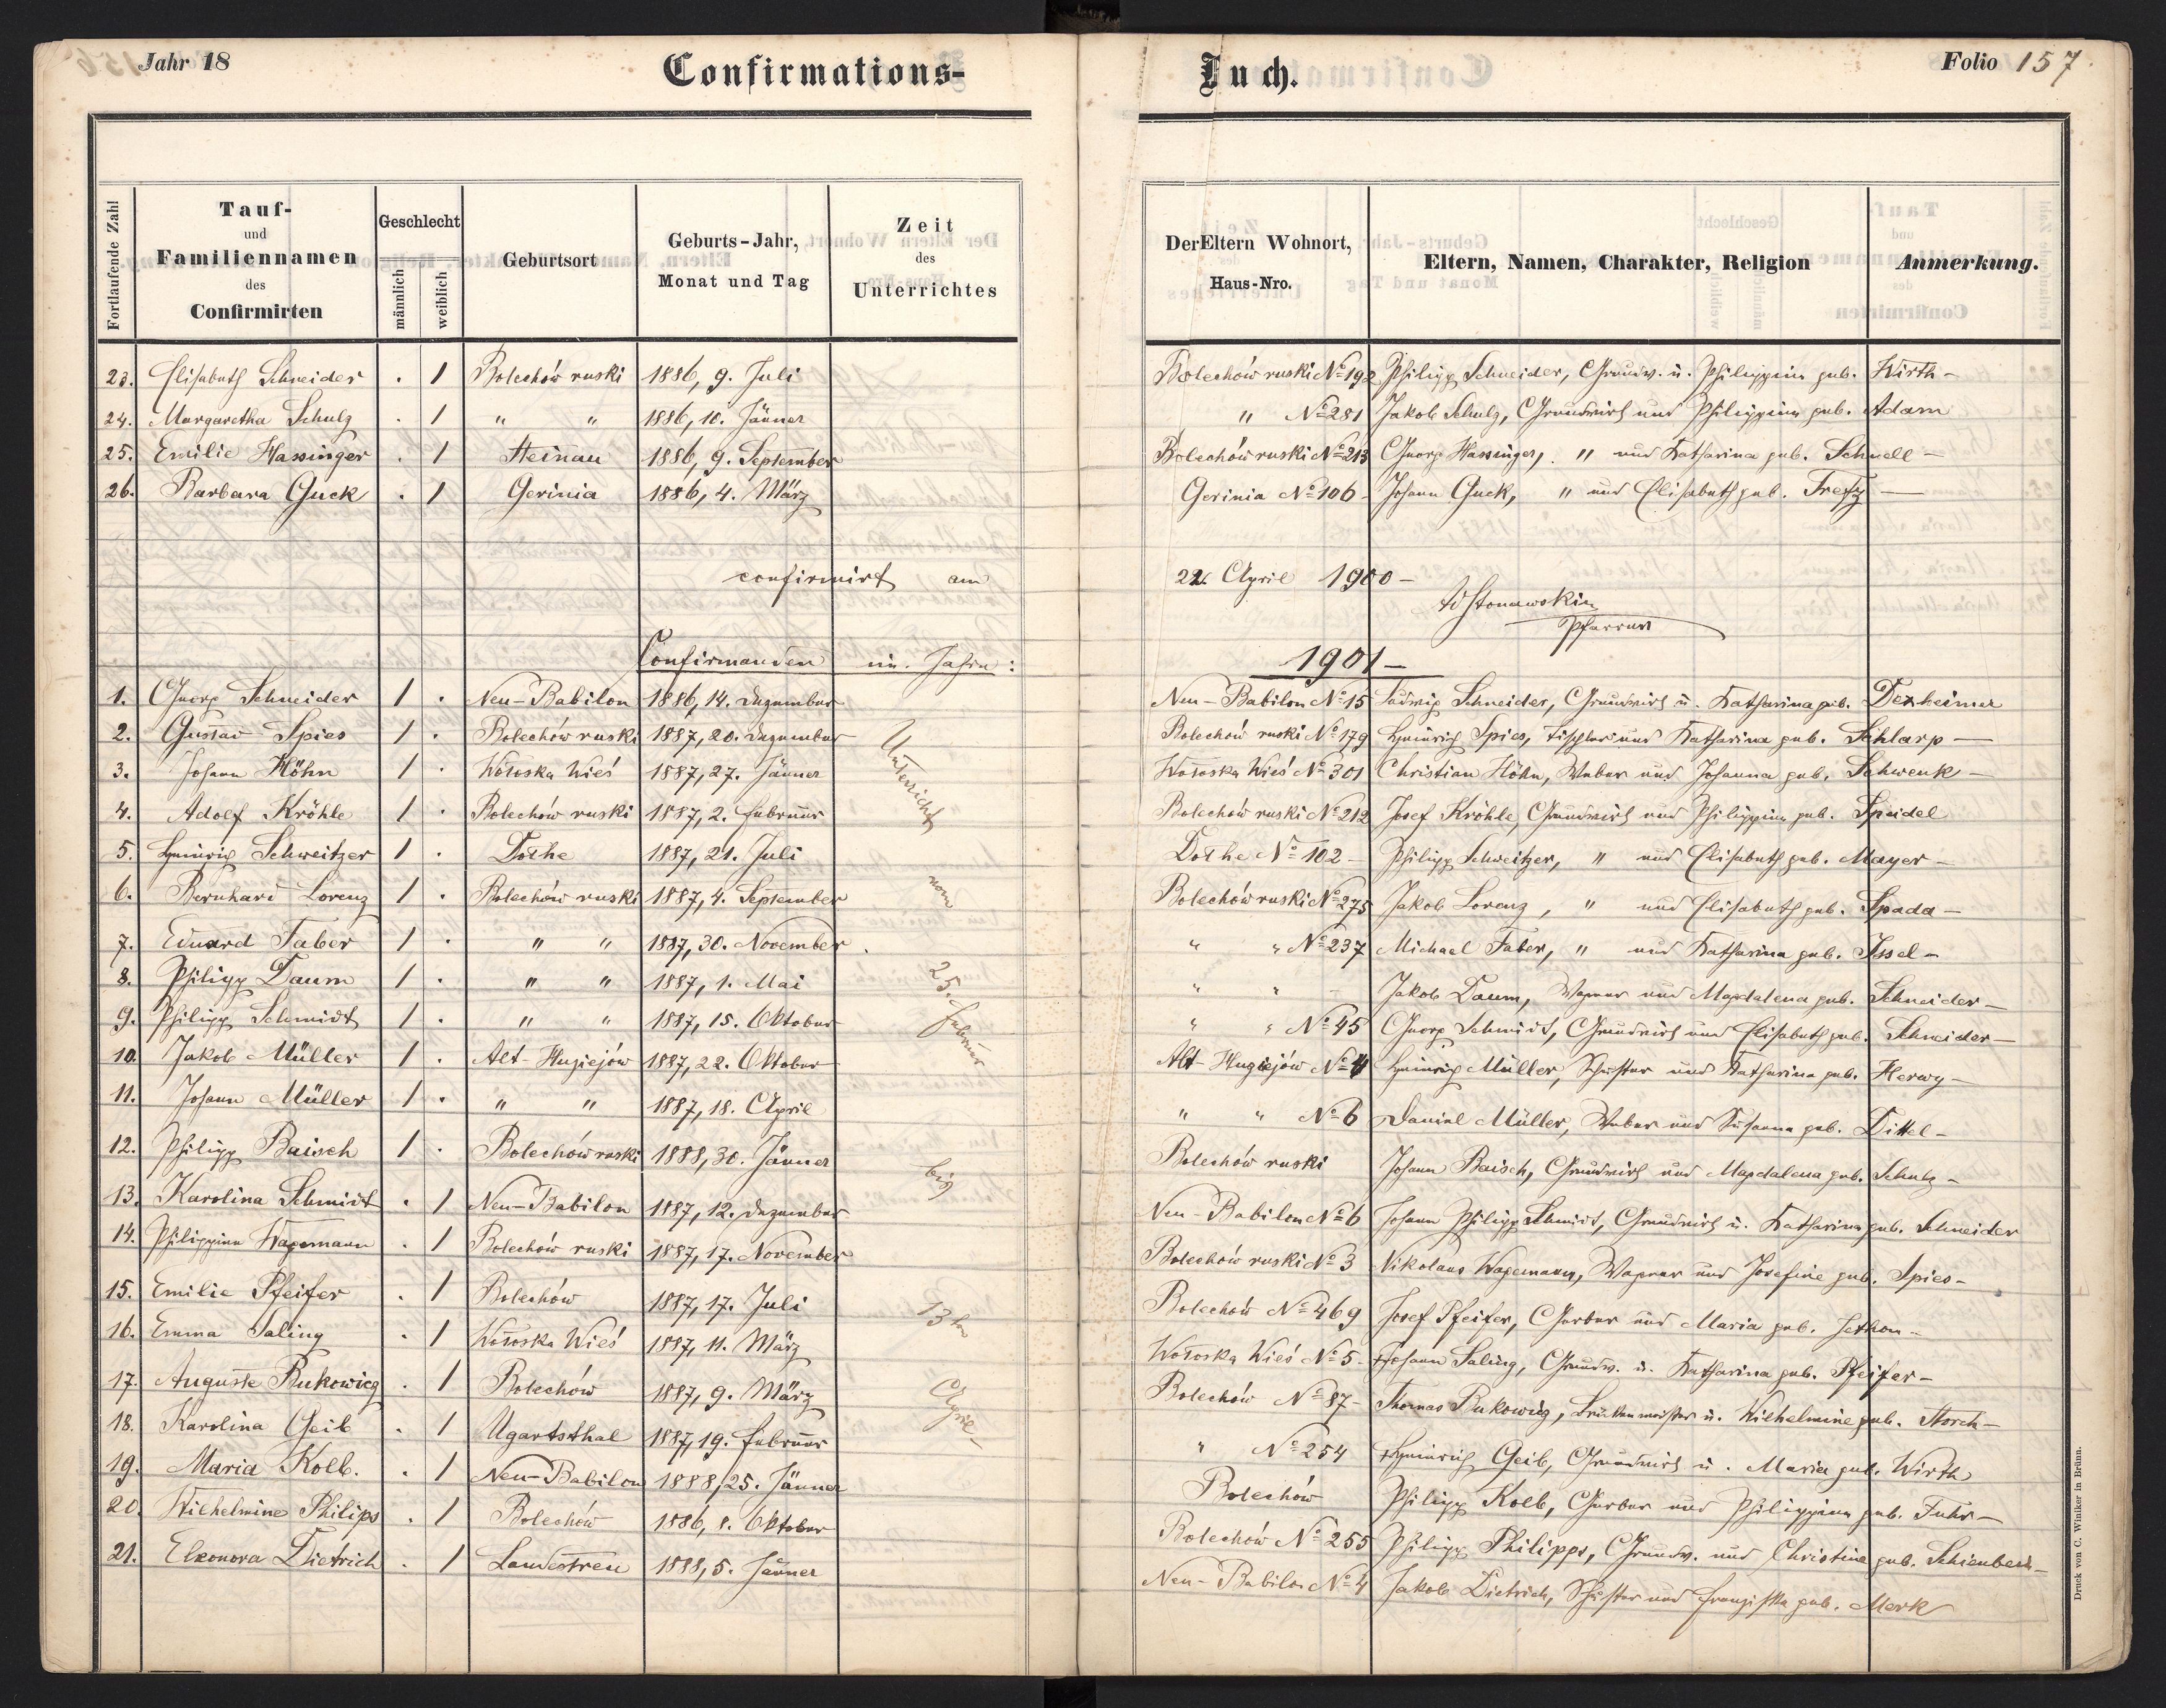 Jahr 18 Confirmations-Buch. Folio 157
Fortlaufende Zahl Tauf- und Familiennamen des Confirmirten Geschlecht männlich weiblich Geburtsort Geburts-Jahr, Monat und Tag Zeit des Unterrichtes Der Eltern Wohnort, Haus-Nro. Eltern, Namen, Charakter, Religion Anmerkung.
23. Elisabeth Schneider . 1 Bolechów ruski 1886, 9. Juli Bolechów ruski No 192 Philipp Schneider, Grundw. u. Philippine geb. Wirth -
24. Margaretha Schulz . 1 " " 1886, 10. Jänner " No 281 Jakob Schulz, Grundwirt und Philippine geb. Adam
25. Emilie Hassinger . 1 Steinau 1886, 9. September Bolechów ruski No 213 Georg Hassinger, " und Katharina geb. Schnell -
26. Barbara Guck . 1 Gerinia 1886, 4. März Gerinia No 106 - Johann Guck, " und Elisabeth geb. Fretz -
confirmirt am 22. April 1900 -
Pfarrer
Confirmanden im Jahre: 1901 -
1. Georg Schneider 1 . Neu-Babilon 1886, 14. Dezember Neu-Babilon No 15 Ludwig Schneider, Grundwirt u. Katharina geb. Dexheimer
2. Gustav Spies 1 . Bolechów ruski 1887, 20. Dezember Bolechów ruski No 179 Heinrich Spies, Tischler und Katharina geb. Schlarp -
3. Johann Höhn 1 . Wołoska Wieś 1887, 27. Jänner Wołoska Wieś No 301 Christian Höhn, Weber und Johanna geb. Schwenk -
4. Adolf Kröhle 1 . Bolechów ruski 1887, 2. Februar Bolechów ruski No 212 Josef Kröhle, Grundwirt und Philippine geb. Speidel
5. Heinrich Schweitzer 1 . Dołhe 1887, 21. Juli Dołhe No 102 - Philipp Schweitzer, " und Elisabeth geb. Mayer -
6. Bernhard Lorenz 1 . Bolechów ruski 1887, 4. September Bolechów ruski No 275 Jakob Lorenz, " und Elisabeth geb. Spada -
7. Eduard Faber 1 . " " 1887, 30. November " " No 237 Michael Faber, " und Katharina geb. Issel -
8. Philipp Daum 1 . " " 1887, 1. Mai " " - Jakob Daum, Wagner und Magdalena geb. Schneider -
9. Philipp Schmidt 1 . " " 1887, 15. Oktober " " No 45 Georg Schmidt, Grundwirt und Elisabeth geb. Schneider -
10. Jakob Müller 1 . Alt-Hugiejów 1887, 22. Oktober Alt-Hugiejów No 4 Heinrich Müller, Schuster und Katharina geb. Herwy -
11. Johann Müller 1 . " " 1887, 18. April " " No 6 Daniel Müller, Weber und Susanna geb. Dittel -
12. Philipp Baisch 1 . Bolechów ruski 1888, 30. Jänner Bolechów ruski Johann Baisch, Grundwirt und Magdalena geb. Schulz -
13. Karolina Schmidt . 1 Neu-Babilon 1887, 12. Dezember Neu-Babilon No 6 Johann Philipp Schmidt, Grundwirt u. Katharina geb. Schneider
14. Philippine Wagemann . 1 Bolechów ruski 1887, 17. November Bolechów ruski No 3 Nikolaus Wagemann, Wagner und Josefine geb. Spies -
15. Emilie Pfeifer . 1 Bolechów 1887, 17. Juli Bolechów No 469 Josef Pfeifer, Gerber und Maria geb.
16. Emma Saling . 1 Wołoska Wieś 1887, 11. März Wołoska Wieś No 5 - Johann Saling, Grundw. u. Katharina geb. Pfeifer -
17. Auguste Bukowicz . 1 Bolechów 1887, 9. März Bolechów No 87 - Thomas Bukowicz, Brückenmeister u. Wilhelmine geb. Storch -
18. Karolina Geib . 1 Ugartsthal 1887, 19. Februar " No 254 Heinrich Geib, Grundwirt u. Maria geb. Wirth
19. Maria Kolb. . 1 Neu-Babilon 1888, 25. Jänner Bolechów Philipp Kolb, Gerber und Philippine geb. Fuhr -
20. Wilhelmine Philips . 1 Bolechów 1886, 8. Oktober Bolechów No 255 Philipp Philipps, Grundw. und Christine geb.
21. Eleonora Dietrich . 1 Landestreu 1888, 5. Jänner Neu-Babilon No 4 Jakob Dietrich, Schuster und Franziska geb. Merk
Unterricht vom 25. Februar bis 13ten April -
Druck von C. Winiker in Brünn.